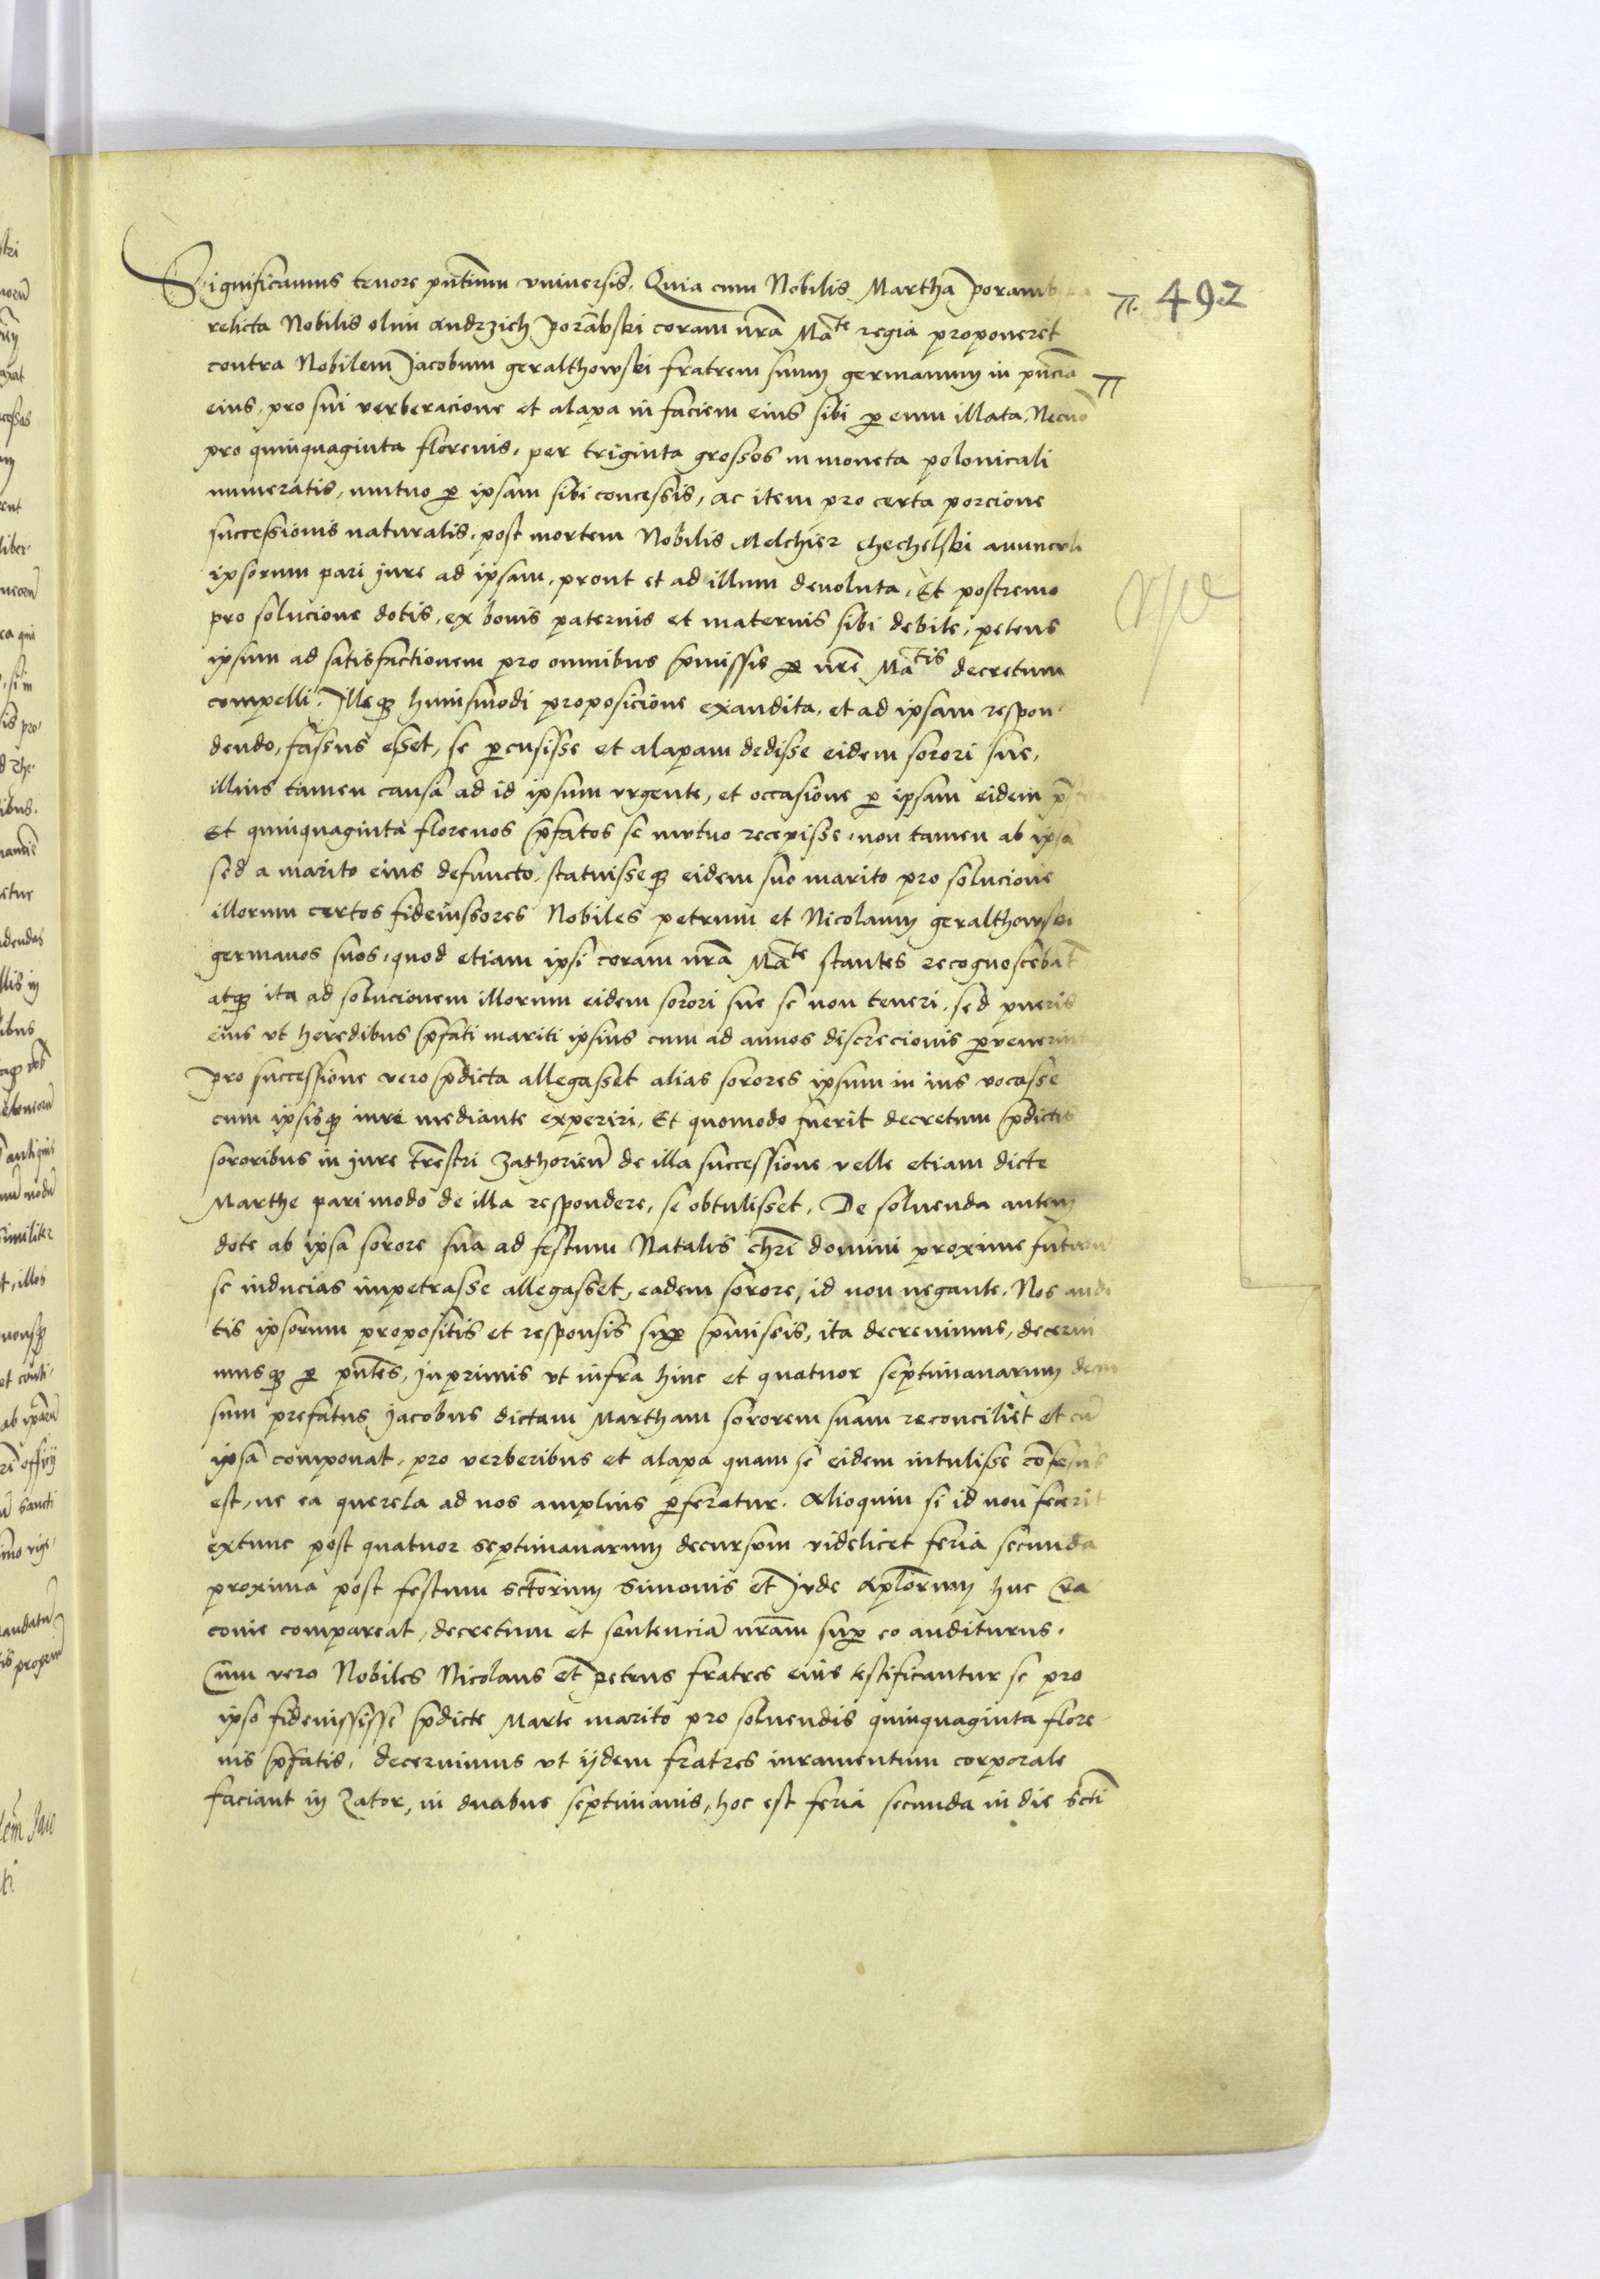 492
Significamus tenore pntium vniuersis. Quia cum Nobilis Martha poramb
relicta Nobilis olim Andrzich porabski coram nra Mate regia proponeret
contra Nobilem Jacobum geralthowski fratrem suum germanum in pncia
eius, pro sui verberacione et alapa in faciem eius sibi p eum illata, Necno
pro quinquaginta florenis, per triginta grossos in moneta polonicali
numeratis, mutuo p ipsam sibi concessis, ac item pro certa porcione
successionis naturalis, post mortem Nobilis Melchier chechelski auunculi
ipsorum pari jure ad ipsam, prout et ad illum deuoluta, Et postremo
pro solucione dotis, ex bonis paternis et maternis sibi debite, petens
ipsum ad satisfactionem pro omnibus pmissis p nre Matis decretum
compelli. Illeq huiusmodi proposicione exaudita, et ad ipsam respon
dendo, fassus esset, se pcusisse et alapam dedisse eidem sorori sue,
illius tamen causa ad id ipsum vrgente, et occasione p ipsam eidem
Et quinquaginta florenos pfatos se mutuo recepisse, non tamen ab ipsa
sed a marito eius defuncto, statuisseq eidem suo marito pro solucione
illorum certos fideiussores Nobiles petrum et Nicolaum geralthowski
germanos suos, quod etiam ipsi coram nra Mate stantes recognoscebat
atq ita ad solucionem illorum eidem sorori sue se non teneri, sed pueris
eius vt heredibus pfati mariti ipsius cum ad annos discrecionis pvenerint
pro successione vero pdicta allegasset alias sorores ipsum in ius vocasse
cum ipsisq iure mediante experiri, Et quomodo fuerit decretum pdictis
sororibus in jure trestri Zathorien de illa successione, velle etiam dicte
Marthe pari modo de illa respondere, se obtulisset, De soluenda autem
dote ab ipsa sorore sua ad festum Natalis chri domini proxime futuru
se inducias impetrasse allegasset, eadem sorore, id non negante. Nos audi
tis ipsorum propositis et responsis sup pmissis, ita decreuimus, decerni
musq p pntes, Inprimis vt infra hinc et quatuor septimanarum
sum prefatus Jacobus dictam Martham sororem suam reconciliet et cu
ipsa componat, pro verberibus et alapa quam se eidem intulisse cofessus
est, ne ea querela ad nos amplius pferatur. Alioquin si id non fecerit
extunc post quatuor septimanarum decursum videlicet feria secunda
proxima post festum sctorum Simonis et Jude aplorum huc Cra
couie compareat, decretum et sentencia nram sup eo auditurus.
Cum vero Nobiles Nicolaus et petrus fratres eius testificantur se pro
ipso fideiussisse pdicte Marte marito pro soluendis quinquaginta flore
nis pfatis, decernimus vt ijdem fratres iuramentum corporale
faciant in Zator, in duabus septimanis, hoc est feria secunda in die scti